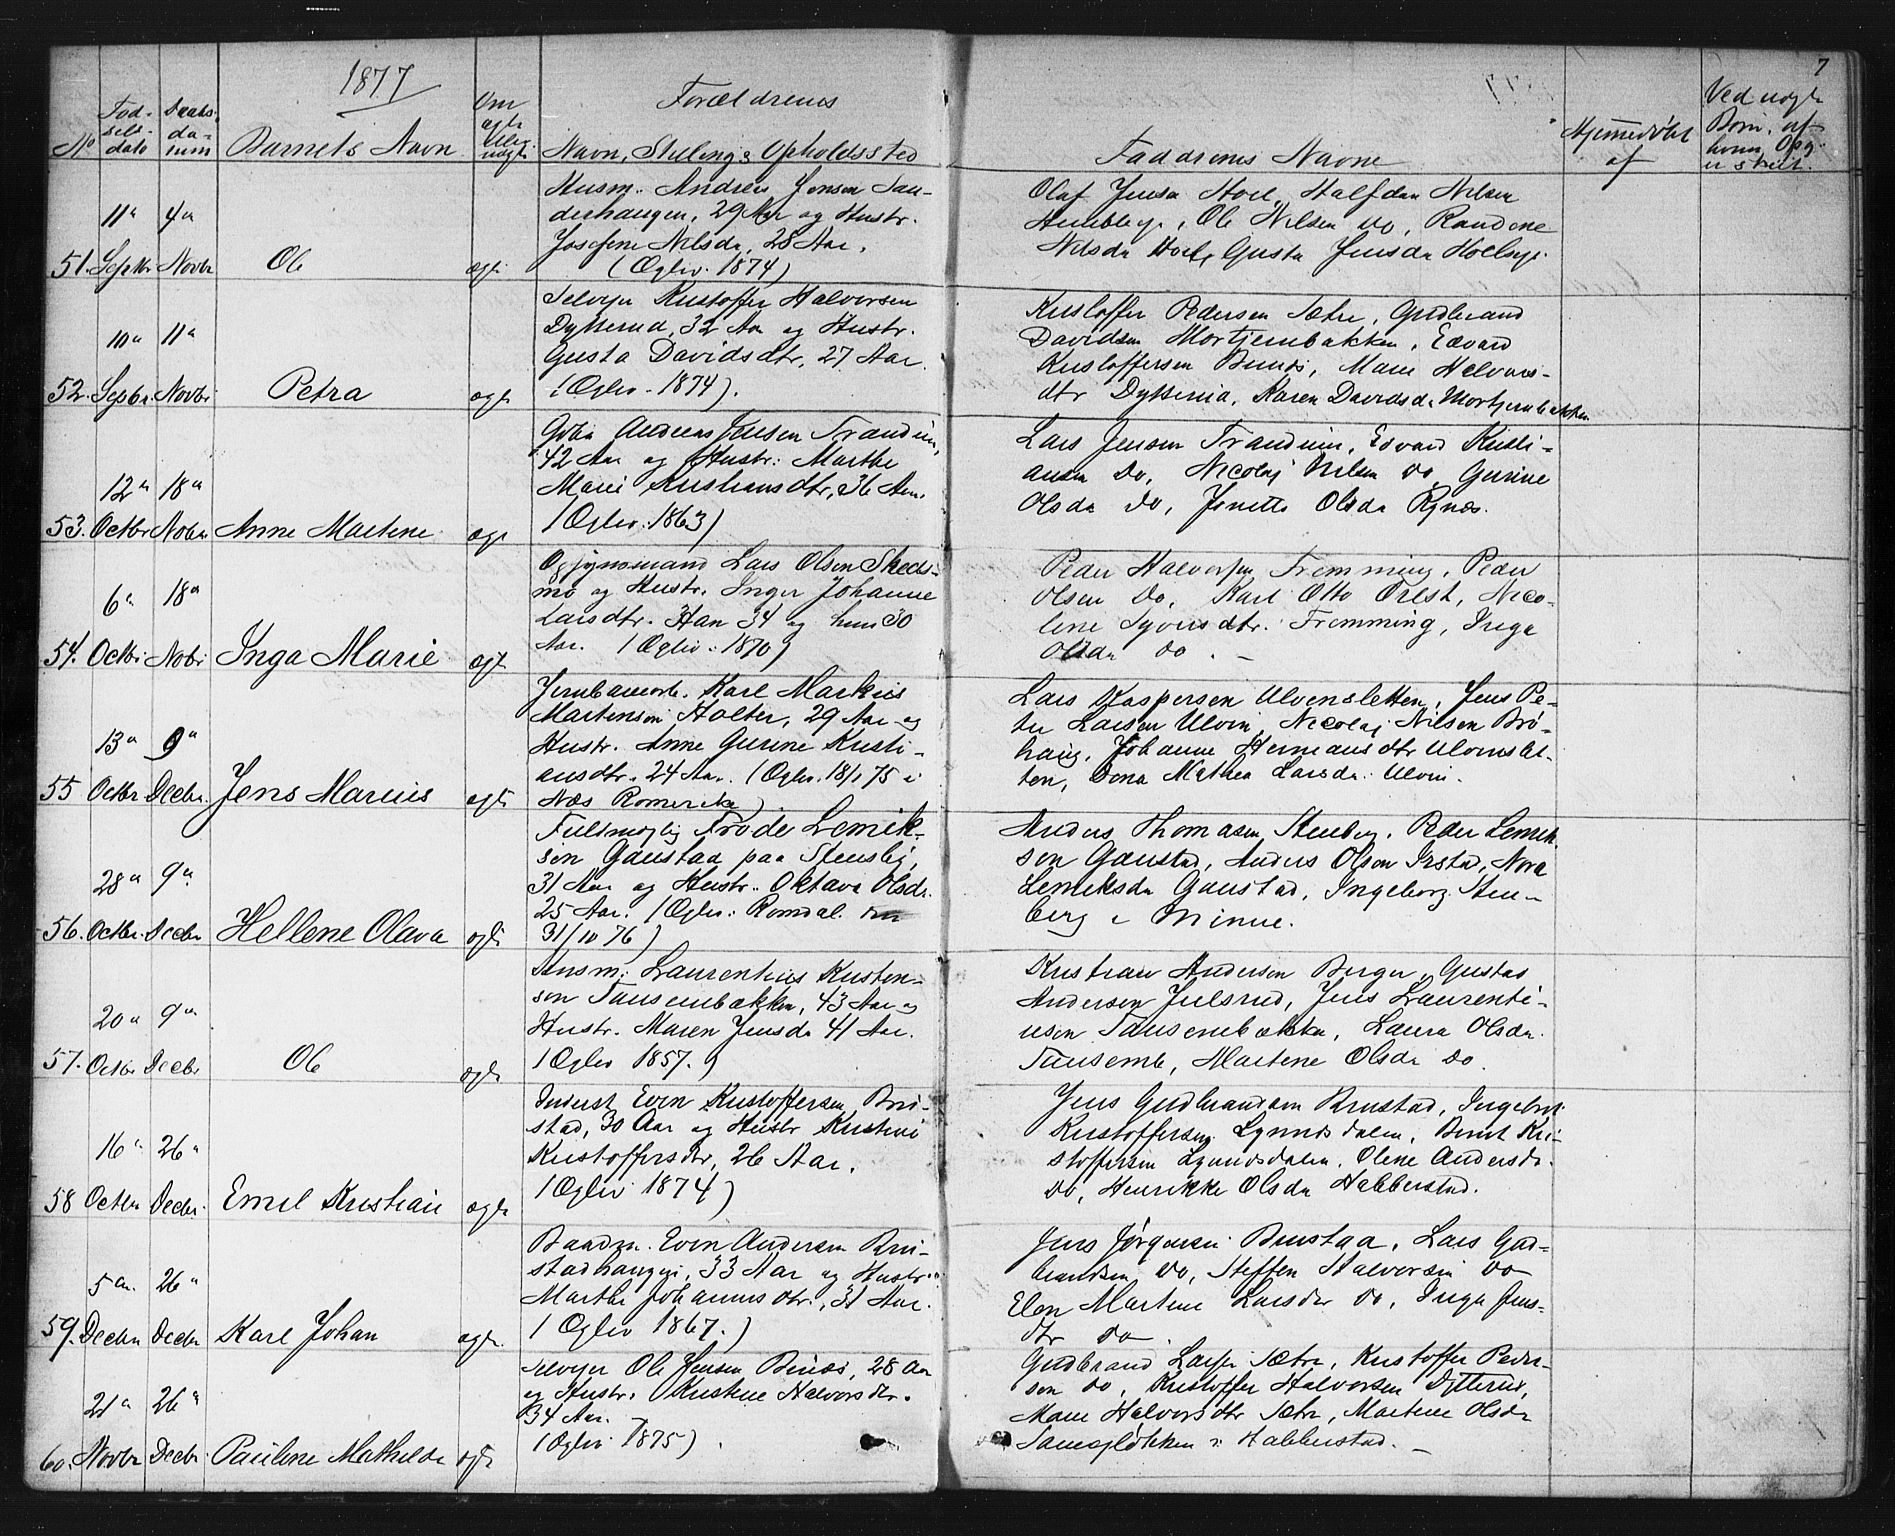 1877
7
No
Fød-
sels-
dato
Daabs-
da-
tum
Barnets Navn
Om
ægte
Eller
uægte
Forældrenes
Navn, Stilling & Opholdssted
Faddrenes Navne
Hjemmedøbt
af
Ved uægte
Børn, af
hvem Opg.
er skeet.
51. 11te Septbr 4de Novbr Ole ægte
Husm. Andreas Jensen San-
derhaugen, 29 Aar og Hustr.
Josefine Nilsdr, 28 Aar.
(Ægtev. 1874)
Olaf Jensen Hoel, Halfdan Nilsen
Ole Nilsen do, Randine
Nilsdr Hoel, Gusta Jensdr Hoelseje.
52. 10de Septbr. 11te Novbr Petra ægte
Selvejer Kristoffer Halvorsen
Dytterud, 32 Aar og Hustr.
Gusta Davidsdtr, 27 Aar.
(Ægtev. 1874).
Kristoffer Pedersen Sætre, Gudbrand
Davidsen Mortjernbakken, Edvard
Kristoffersen Bunæs, Maren Halvors-
dtr Dytterud, Karen Davidsdr Mortjernbakken
53. 12te Octbr 18de Novbr Anne Martine ægte
Gbr Andreas Jensen Trandum,
42 Aar og Hustr: Marthe
Marie Kristiansdtr, 36 Aar.
(Ægtev. 1863)
Lars Jensen Trandum, Edvard Kristi-
ansen do, Nicolaj Nilsen do, Gurine
Olsdr do, Jonette Olsdr Rynæs.
54. 6te Octbr 18de Nobr Inga Marie ægte
Opsynsmand Lars Olsen Skeds-
mo og Hustr. Inger Johanne
Larsdtr. Han 34 og hun 30
Aar. (Ægtev. 1870)
Peder Halvorsen Fremming, Peder
Olsen do, Karl Otto Qrest, Nico-
line Syversdtr. Fremming, Inga
Olsdr do. –
55 13de Octbr 9de Decbr. Jens Marius ægte
Jernbanearb. Karl Markus
Martinsen Holter, 29 Aar og
Hustr. Anne Gurine Kristi-
ansdtr. 24 Aar. (Ægtev. 18/1 75 i
Næs Romerike)
Lars Kaspersen Ulvensletten, Jens Pe-
ter Larsen Ulvin, Nicolaj Nilsen Brø-
haug, Johanne Hermansdtr Ulvenslet-
ten, Dona Mathea Larsdr. Ulvin.
56. 28de Octbr. 9de Decbr Hellene Olava ægte
Fuldmægtig Frode Lerrik-
sen Gaustad paa Stensby,
31 Aar og Hustr. Oktava Olsdr.
25 Aar. (Ægtev. Romdal.
31/10 76)
Anders Thomasen Stenberg, Peder Lerrik-
sen Gaustad, Anders Olsen Irstad, Nora
Lerriksdr Gaustad, Ingeborg Sten-
berg i Minne.
57. 20de Octbr 9de Decbr Ole ægte
Husm. Laurentius Kristen-
sen Tausenbakken, 43 Aar og
Hustr. Maren Jensdr 41 Aar.
(Ægtev 1857.)
Kristian Andersen Berger, Gustav
Andersen Julsrud, Jens Laurenti-
usen Tausenbakken, Laura Olsdr.
Tausemb, Martine Olsdr do.
58 16de Octbr 26de Decbr. Emil Kristian ægte
Inderst Even Kristoffersen Bru-
stad, 30 Aar og Hustr Kristine
Kristoffersdtr, 26 Aar.
(Ægtev 1874)
Jens Gudbrandsen Brustad, Ingebrt
Kristoffersen Lynnisdalen, Bernt Kri-
stoffersen Lynnisdalen, Olene Andersdr.
do, Henrikke Olsdr Habberstad.
59. 5te Decbr 26de Decbr Karl Johan ægte.
Baadm. Even Andersen Bru-
stadhaugen, 33 Aar og Hustr.
Marthe Johannesdtr., 31 Aar.
(Ægtev 1867.)
Jens Jørgensen Brustad, Lars Gud-
brandsen do, Steffen Halvorsen do
Elen Martine Larsdtr do, Inga Jens-
dtr do.
60. 21de Novbr 26de Decbr. Pauline Mathilde ægte
Selvejer Ole Jensen Bunæs, 28 Aar
og Hustr. Kristine Halvorsdtr.
34 Aar.
(Ægtev 1875).
Gudbrand Larsen Sætre, Kristoffer Peder-
sen do, Kristoffer Halvorsen Dytterud,
Maren Halvorsdtr Sætre, Martine Olsdr
Sameløkken v. Habberstad. –